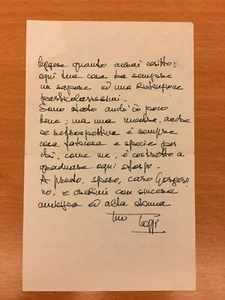 leggere quanto avrai scritto:
ogni tua cosa ha sempre
un sapore ed una
particolarissimi.
Sono stato anch'io poco
bene; ma una mostra, anche
se retrospettiva è sempre
cosa faticosa e specie per
chi, come me, è costretto a
graduare ogni sforzo.
A presto, spero, caro
e credimi con sincera
amicizia ed alla donna